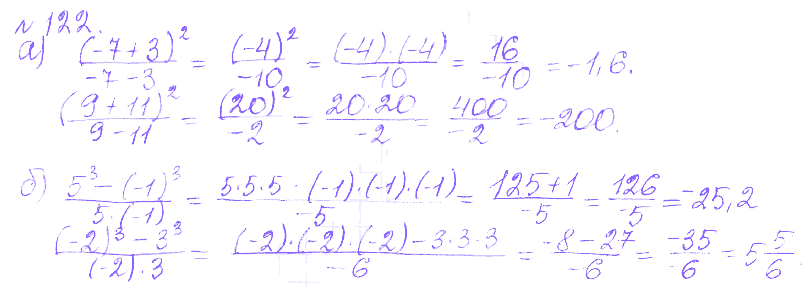 №122.
а) (-7+3)²/(-7-3) = (-4)²/(-10) = (-4)·(-4)/(-10) = 16/(-10) = -1,6.
(9+11)²/(9-11) = (20)²/(-2) = 20·20/(-2) = 400/(-2) = -200.
б) (5³-(-1)³)/(5·(-1)) = (5·5·5-(-1)·(-1)·(-1))/(-5) = (125+1)/(-5) = 126/(-5) = -25,2
((-2)³-3³)/((-2)·3) = ((-2)·(-2)·(-2)-3·3·3)/(-6) = (-8-27)/(-6) = (-35)/(-6) = 5 5/6.